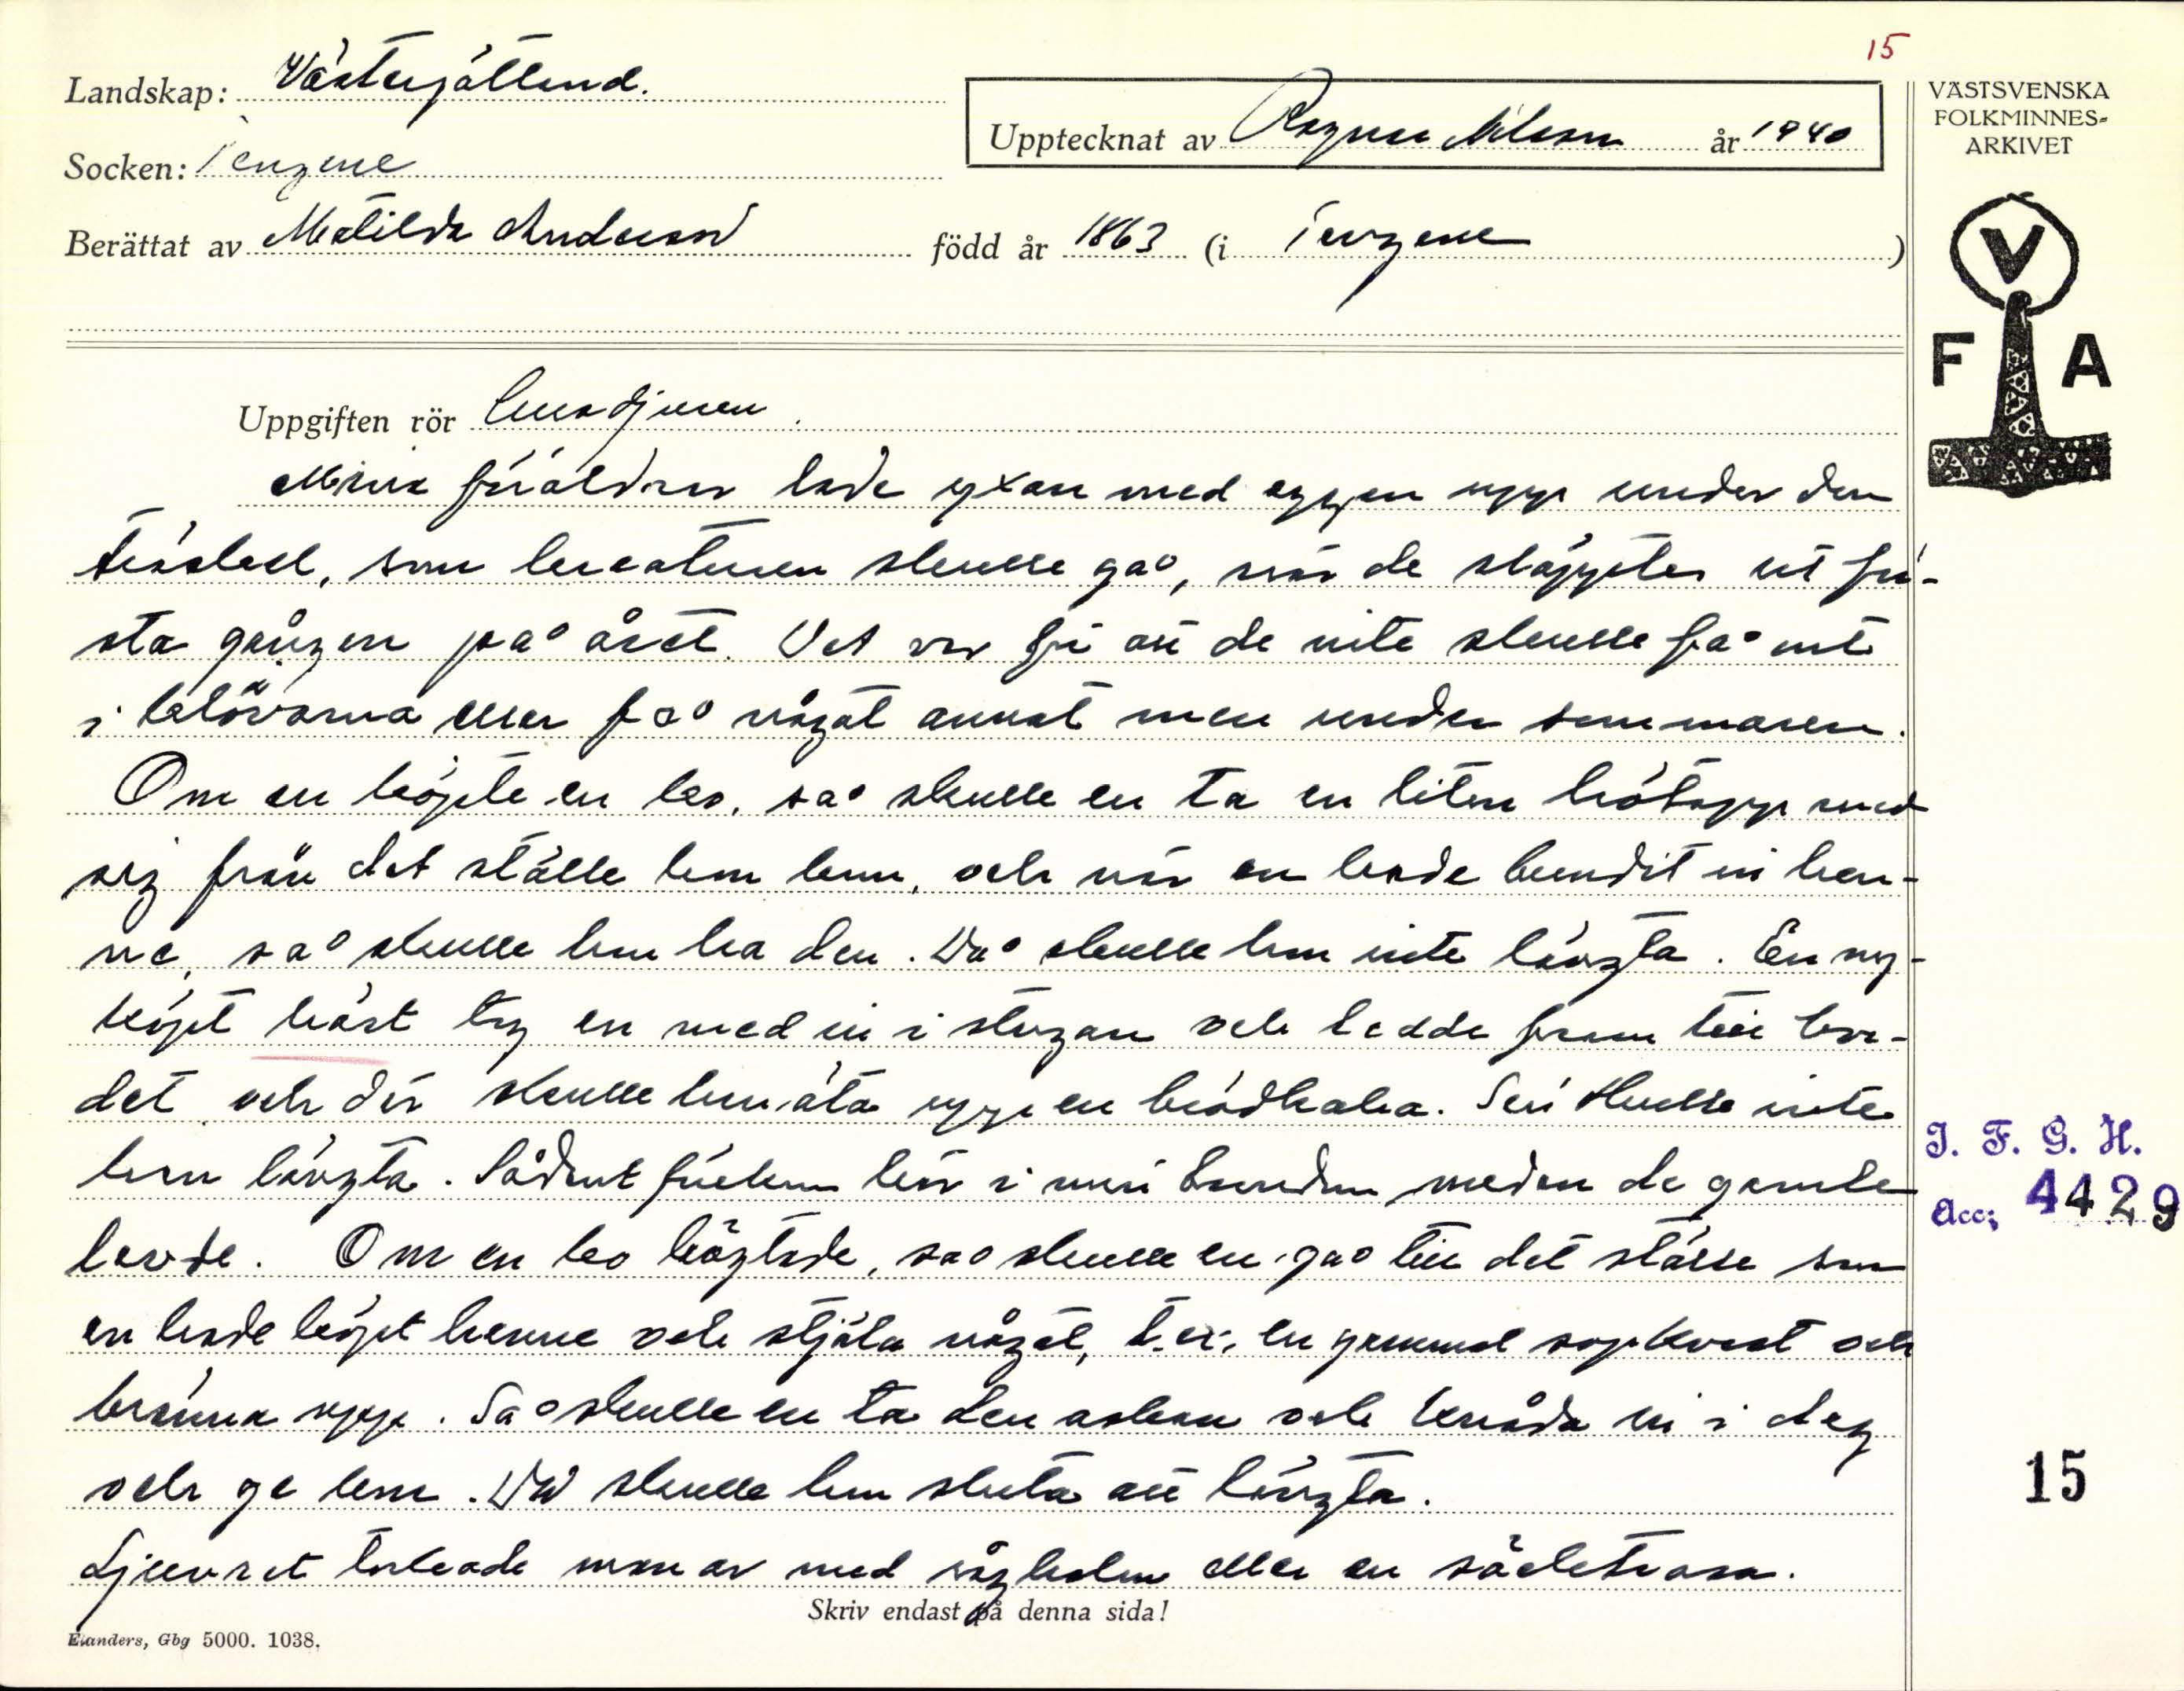 15
Landskap: Västergötland.
Upptecknat av Ragnar Nilsson år 1940
VÄSTSVENSKA
FOLKMINNES-
ARKIVET
Socken: Tengene
Berättat av Matilda Andersson född år 1863 (i Tengene)
V
F A
Uppgiften rör Husdjuren.
Mina föräldrar lade yxan med eggen upp under den
tröskel, som kreaturen skulle gå, när de släpptes ut för-
sta gången på året. Det var för att de inte skulle få ont
i klövarna eller få något annat men under sommaren.
Om en köpte en ko, så skulle en ta en liten hötapp med
sig från det ställe hon kom, och när en hade bundit in hen-
ne, så skulle hon ha den. Då skulle hon inte längta. En ny-
köpt häst tog en med in i stugan och ledde fram till bor-
det och där skulle han äta upp en brödkaka. Sen skulle inte
han längta. Sådant förekom här i min barndom medan de gamla
levde. Om en ko längtade, så skulle en gå till det ställe som
en hade köpt henne och stjäla något, t.ex. en gammal sopkvast och
bränna upp. Så skulle en ta den askan och knåda in i deg
och ge hon. Då skulle hon sluta att längta.
Ljuvret torkade man av med råghalm eller en säcktrasa.
J. F. G. H.
Acc; 4429
15
Skriv endast på denna sida!
Elanders, Gbg 5000. 1038.